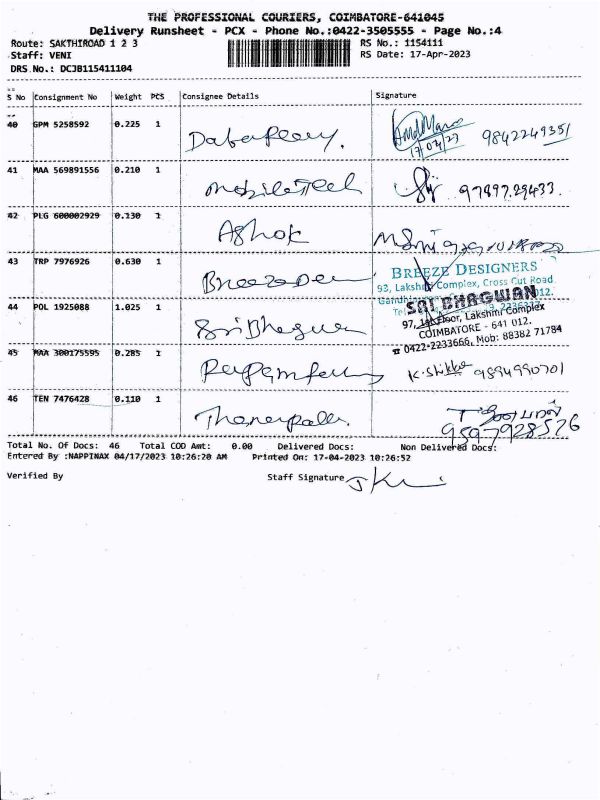 THE PROFESSIONAL COURIERS, COIMBATORE-641045
Delivery Runsheet - PCX - Phone No.:0422-3505555 - Page No.:4
Route: SAKTHIROAD 1 2 3 RS No.: 1154111
Staff: VENI RS Date: 17-Apr-2023
DRS No.: DCJB115411104
S No Consignment No Weight PCS Consignee Details Signature
40 GPM 5258592 0.225 1 17/04/23 9842249351
41 MAA 569891556 0.210 1 97897 29433.
42 PLG 600002929 0.130 1 Ashok
43 TRP 7976926 0.630 1
BREEZE DESIGNERS
93, Lakshmi Complex, Cross Cut Road
012.
44 POL 1925088 1.025 1 Sri Bhagwan
SRI BHAGWAN
97, 1st Floor, Lakshmi Complex
COIMBATORE - 641 012.
☎ 0422-2233666, Mob: 88382 71784
45 MAA 300175595 0.285 1 9894990701
46 TEN 7476428 0.110 1
9597928526
Total No. Of Docs: 46 Total COD Amt: 0.00 Delivered Docs: Non Delivered Docs:
Entered By :NAPPINAX 04/17/2023 10:26:20 AM Printed On: 17-04-2023 10:26:52
Verified By Staff Signature